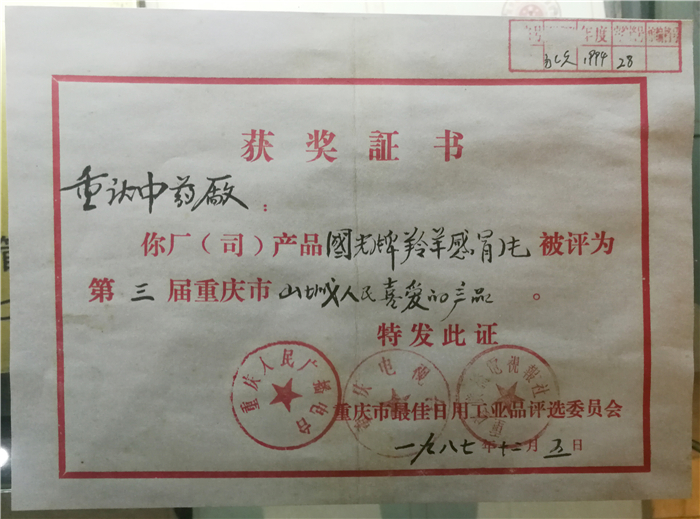 年度
1994 28
获奖証书
重庆中药厰：
你厂（司）产品國光牌羚羊感冒片被评为
第三届重庆市山城人民喜爱的产品。
特发此证
重庆人民广播电台
重庆电视台
电视报社
重庆市最佳日用工业品评选委员会
一九八七年十二月五日